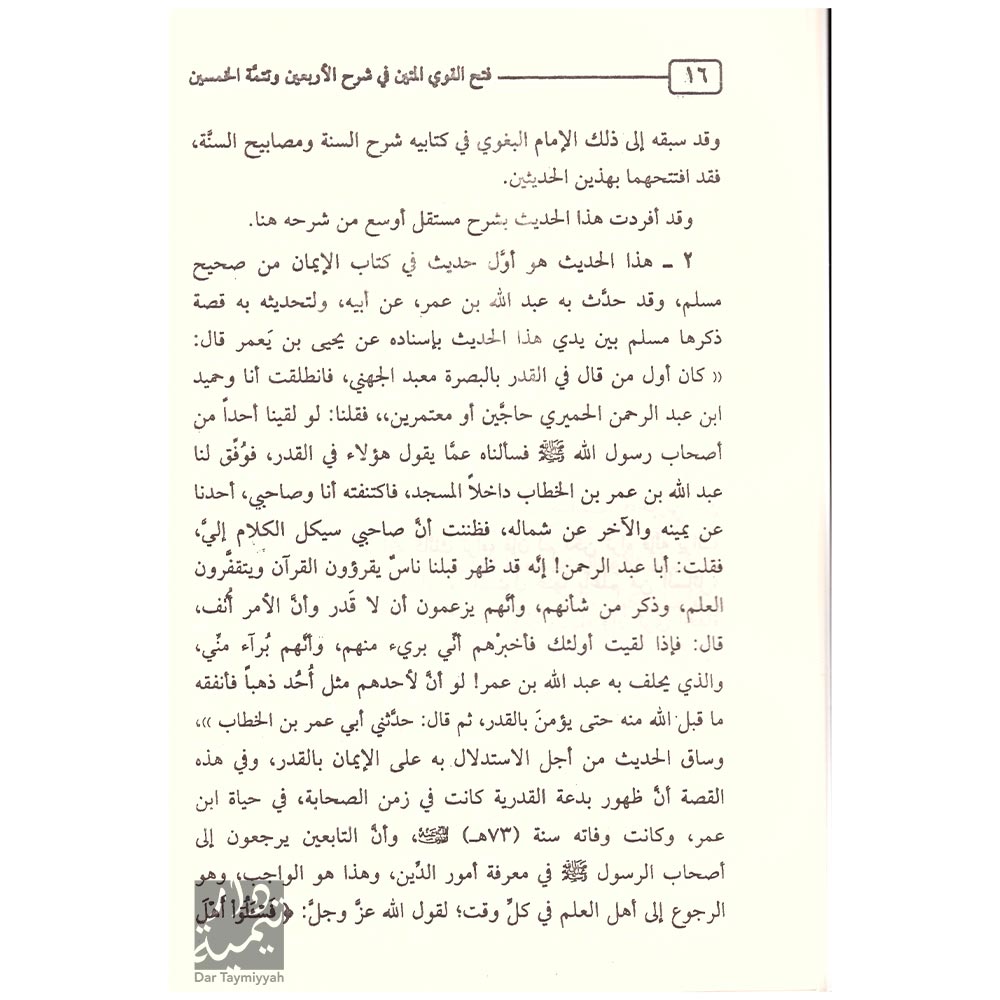 ١٦
فتح القوي المتين في شرح الأربعين وتتمَّة الخمسين
وقد سبقه إلى ذلك الإمام البغوي في كتابيه شرح السنة ومصابيح السنَّة،
فقد افتتحهما بهذين الحديثين.
وقد أفردت هذا الحديث بشرح مستقل أوسع من شرحه هنا.
٢ ـ هذا الحديث هو أوَّل حديث في كتاب الإيمان من صحيح
مسلم، وقد حدَّث به عبد الله بن عمر، عن أبيه، ولتحديثه به قصة
ذكرها مسلم بين يدي هذا الحديث بإسناده عن يحيى بن يَعمر قال:
(( كان أول من قال في القدر بالبصرة معبد الجهني، فانطلقت أنا وحميد
ابن عبد الرحمن الحميري حاجَّين أو معتمرين،، فقلنا: لو لقينا أحداً من
أصحاب رسول الله ﷺ فسألناه عمَّا يقول هؤلاء في القدر، فوُفِّق لنا
عبد الله بن عمر بن الخطاب داخلاً المسجد، فاكتنفته أنا وصاحبي، أحدنا
عن يمينه والآخر عن شماله، فظننت أنَّ صاحبي سيكل الكلام إليَّ،
فقلت: أبا عبد الرحمن! إنَّه قد ظهر قبلنا ناسٌ يقرؤون القرآن ويتقفَّرون
العلم، وذكر من شأنهم، وأنَّهم يزعمون أن لا قَدر وأنَّ الأمر أُنُف،
قال: فإذا لقيت أولئك فأخبرْهم أنِّي بريء منهم، وأنَّهم بُرآء منِّي،
والذي يحلف به عبد الله بن عمر! لو أنَّ لأحدهم مثل أُحُد ذهباً فأنفقه
ما قبل الله منه حتى يؤمنَ بالقدر، ثم قال: حدَّثني أبي عمر بن الخطاب ))،
وساق الحديث من أجل الاستدلال به على الإيمان بالقدر، وفي هذه
القصة أنَّ ظهور بدعة القدرية كانت في زمن الصحابة، في حياة ابن
عمر، وكانت وفاته سنة (٧٣هـ) ، وأنَّ التابعين يرجعون إلى
أصحاب الرسول ﷺ في معرفة أمور الدِّين، وهذا هو الواجب، وهو
الرجوع إلى أهل العلم في كلِّ وقت؛ لقول الله عزَّ وجلَّ: ﴿ فَسْـَٔلُوٓا۟ أَهْلَ
دار تيمية
Dar Taymiyyah